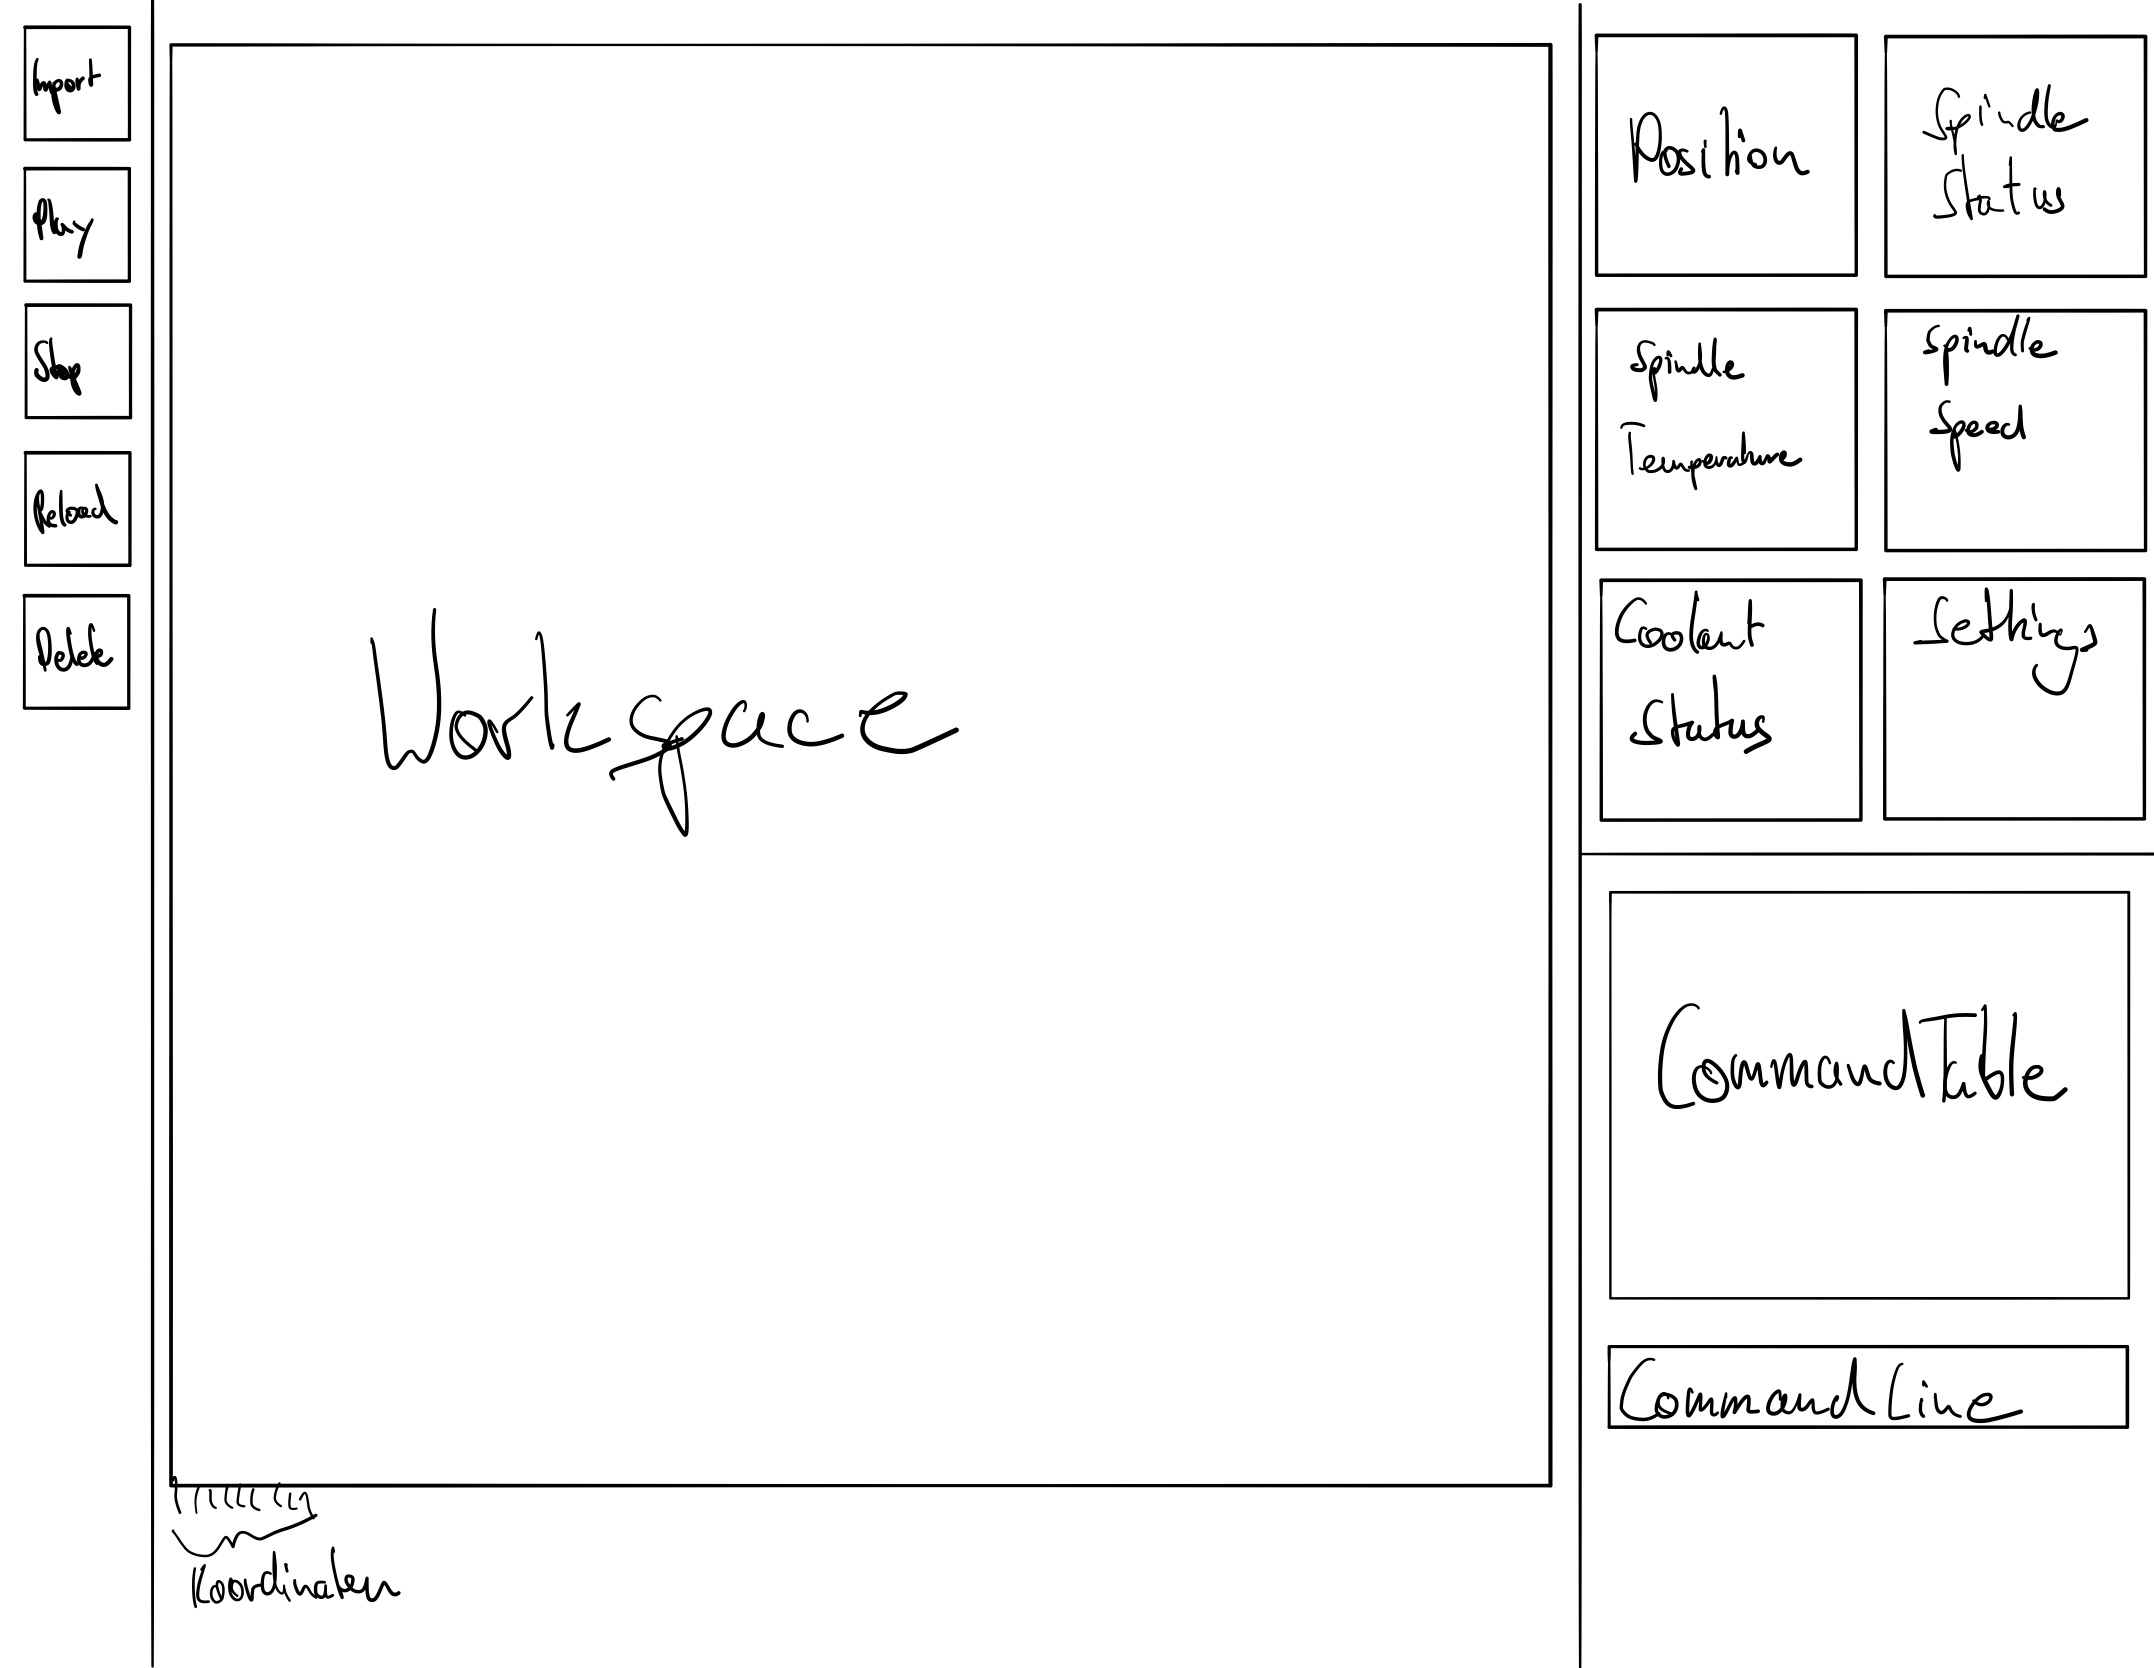 Import
Play
Stop
Reload
Delete
Workspace
Koordinaten
Position
Spindle
Status
Spindle
Temperature
Spindle
Speed
Coolant
Status
Settings
Command Table
Command Line